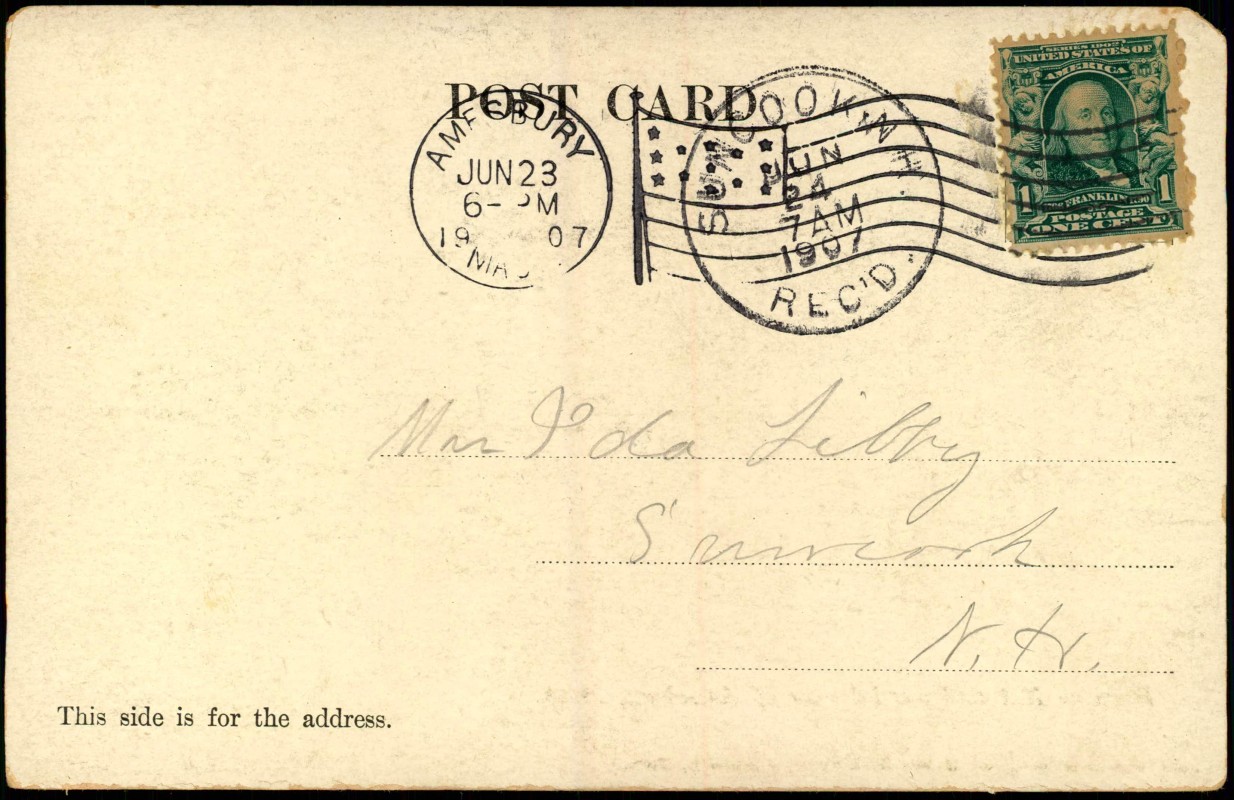 POST CARD
AMESBURY
JUN 23
6- PM
19 07
MASS
SUNCOOK, N.H.
JUN
24
7AM
1907
REC'D.
SERIES 1902
UNITED STATES OF
AMERICA
1 FRANKLIN 1
POSTAGE
ONE CENT
Mrs Ida Libby
Suncook
N. H.
This side is for the address.